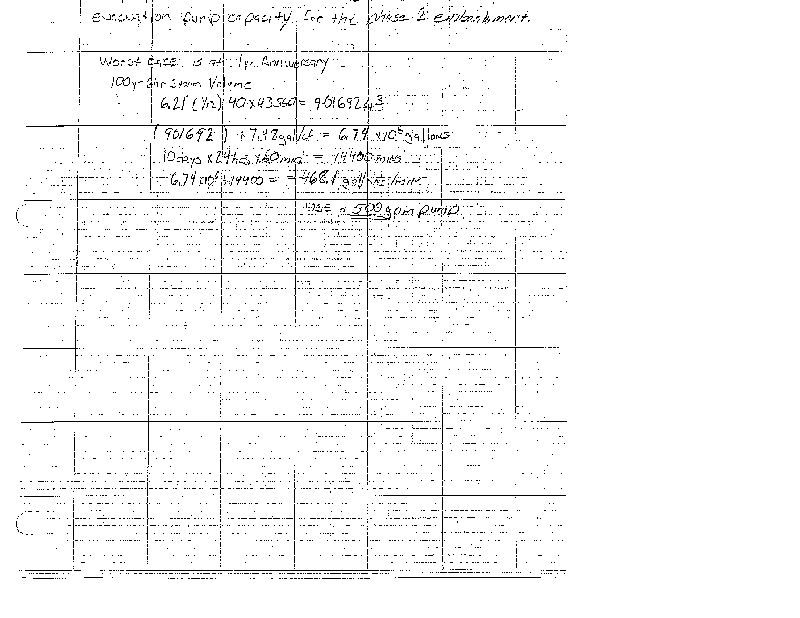 evacuation pump capacity for the phase 1 embankment.
Worst case is at 1yr Anniversary
100yr 6hr Storm Volume
6.21 (1/12) 40 x 43560 = 901692 ft3
(901692) * 7.48 gal/cf = 6.74 x 10^6 gallons
10 days x 24 hrs x 60 min = 14400 mins
6.74 x10^6 ÷ 14400 = 468.1 gal /min
USE a 500 gpm pump